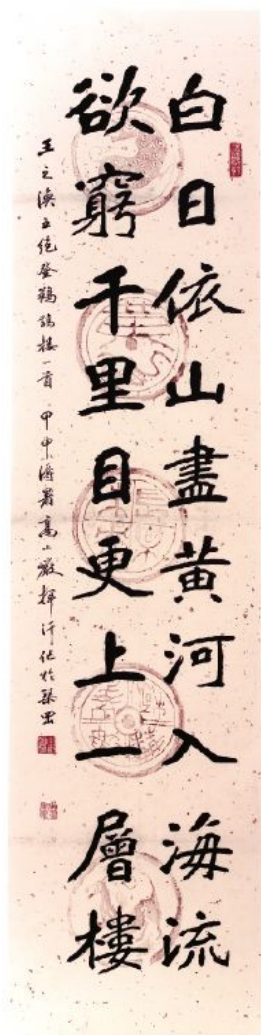 白日依山盡黃河入海流
欲窮千里目更上一層樓
王之渙五絕登鸛鵲樓一首 甲申溽暑高小嚴揮汗作於